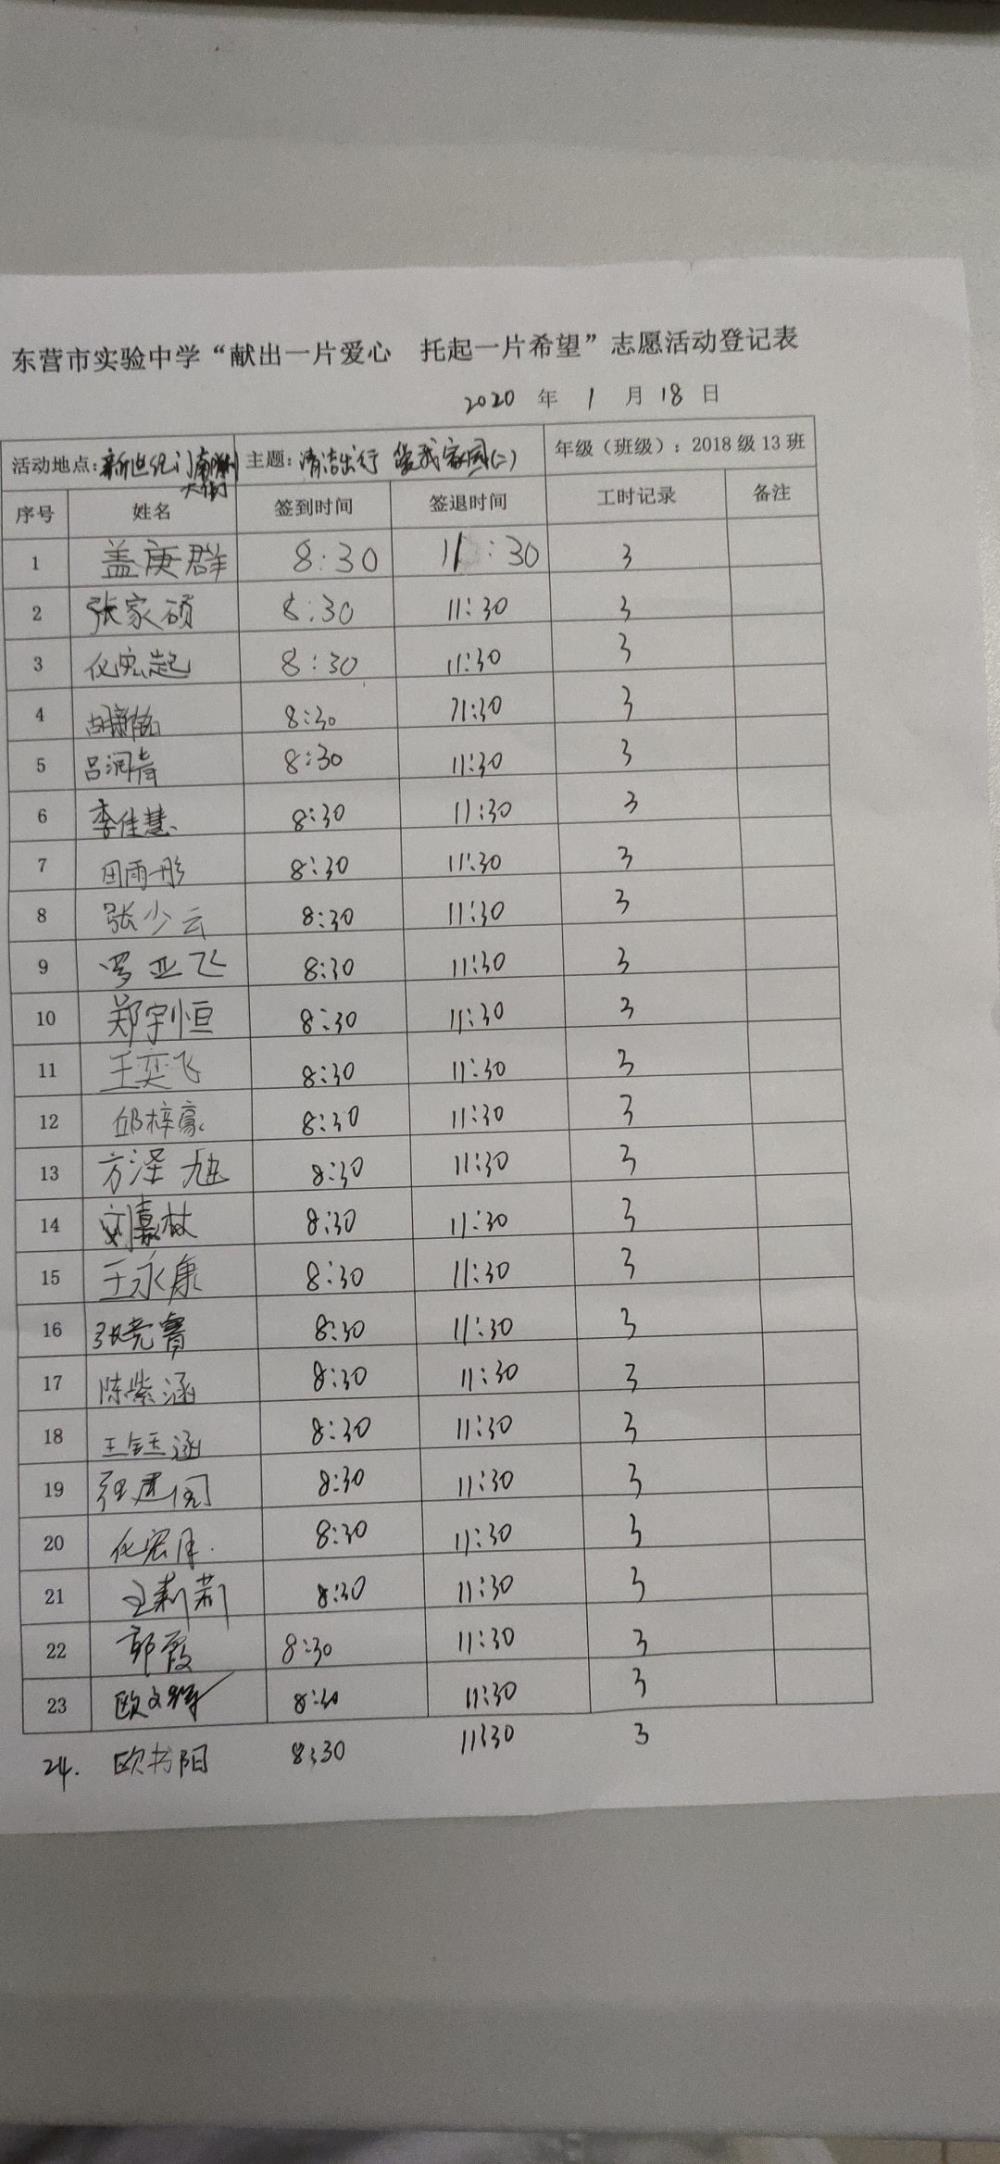 东营市实验中学“献出一片爱心 托起一片希望”志愿活动登记表
2020 年 1 月 18 日
活动地点：新世纪门南 主题：清洁出行 爱我家园(二) 年级（班级）：2018 级 13 班
大街
序号 姓名 签到时间 签退时间 工时记录 备注
1 盖庚群 8:30 11:30 3
2 张家硕 8:30 11:30 3
3 化宏起 8:30 11:30 3
4 8:30 11:30 3
5 吕润青 8:30 11:30 3
6 李佳慧 8:30 11:30 3
7 田雨彤 8:30 11:30 3
8 张少云 8:30 11:30 3
9 罗亚飞 8:30 11:30 3
10 郑宇恒 8:30 11:30 3
11 王奕飞 8:30 11:30 3
12 邱梓豪 8:30 11:30 3
13 方泽旭 8:30 11:30 3
14 刘嘉 8:30 11:30 3
15 王永康 8:30 11:30 3
16 张竞 8:30 11:30 3
17 陈紫涵 8:30 11:30 3
18 王钰涵 8:30 11:30 3
19 8:30 11:30 3
20 化宏月 8:30 11:30 3
21 王莉莉 8:30 11:30 3
22 郭霞 8:30 11:30 3
23 欧文 8:30 11:30 3
24. 欧书阳 8:30 11:30 3